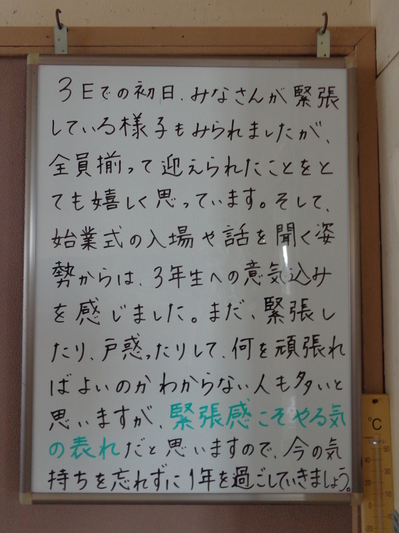 3Eでの初日、みなさんが緊張
している様子もみられましたが、
全員揃って迎えられたことをと
ても嬉しく思っています。そして、
始業式の入場や話を聞く姿
勢からは、3年生への意気込み
を感じました。まだ、緊張し
たり、戸惑ったりして、何を頑張れ
ばよいのかわからない人も多いと
思いますが、緊張感こそやる気
の表れだと思いますので、今の気
持ちを忘れずに1年を過ごしていきましょう。
℃